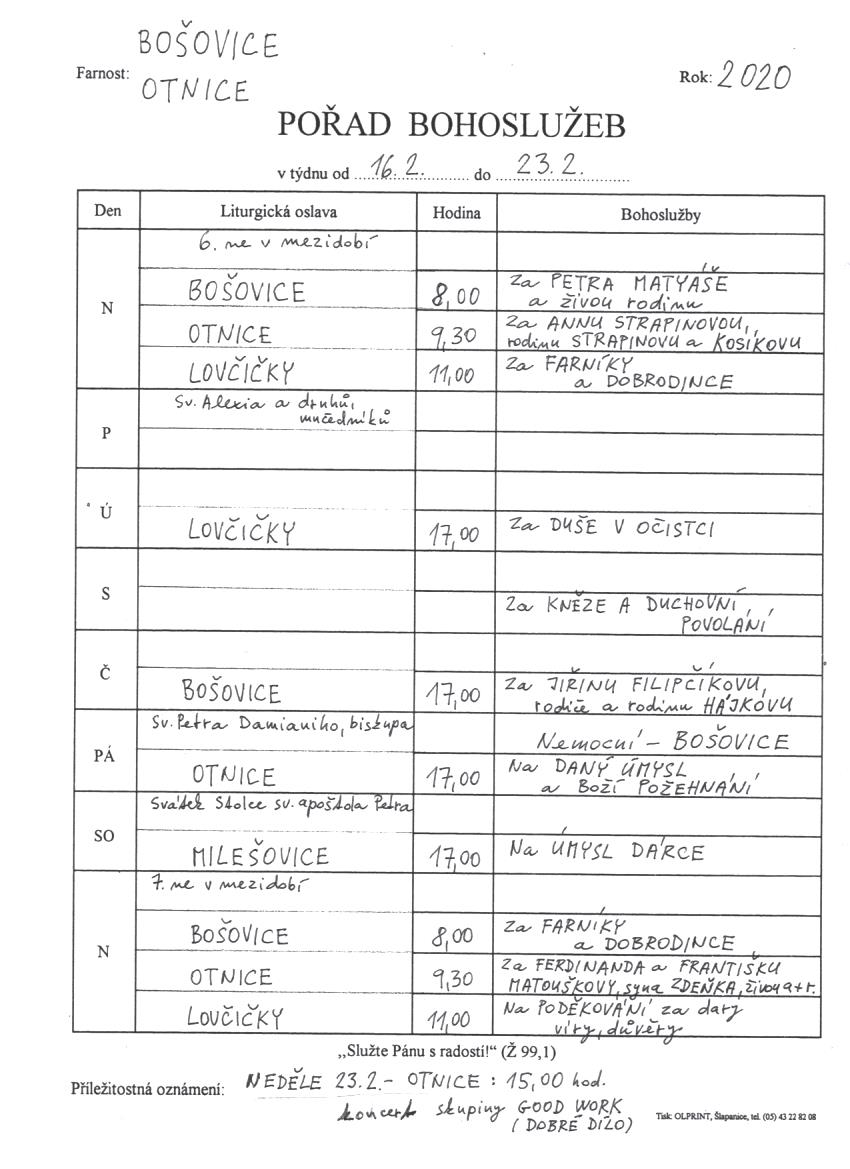 BOŠOVICE
Farnost:
OTNICE
Rok: 2020
POŘAD BOHOSLUŽEB
v týdnu od 16.2. do 23.2.
Den Liturgická oslava Hodina Bohoslužby
N
6. ne v mezidobí
BOŠOVICE 8,00 Za PETRA MATYÁŠE
a živou rodinu
OTNICE 9,30 Za ANNU STRAPINOVOU,
rodinu STRAPINOVU a KOSÍKOVU
LOVČIČKY 11,00 Za FARNÍKY
a DOBRODINCE
P
Sv. Alexia a druhů,
mučedníků
Ú
LOVČIČKY 17,00 Za DUŠE V OČISTCI
S
Za KNĚZE A DUCHOVNÍ
POVOLÁNÍ
Č
BOŠOVICE 17,00 Za JIŘINU FILIPČÍKOVU,
rodiče a rodinu HÁJKOVU
PÁ
Sv. Petra Damianiho, biskupa
Nemocní – BOŠOVICE
OTNICE 17,00 Na DANÝ ÚMYSL
a BOŽÍ POŽEHNÁNÍ
SO
Svátek Stolce sv. apoštola Petra
MILEŠOVICE 17,00 Na ÚMYSL DÁRCE
N
7. ne v mezidobí
BOŠOVICE 8,00 Za FARNÍKY
a DOBRODINCE
OTNICE 9,30 Za FERDINANDA a FRANTIŠKU
MATOUŠKOVY, syna ZDEŇKA, živou+r.
LOVČIČKY 11,00 Na PODĚKOVÁNÍ za dary
víry, důvěry
„Služte Pánu s radostí!“ (Ž 99,1)
Příležitostná oznámení: NEDĚLE 23.2.- OTNICE : 15,00 hod.
koncert skupiny GOOD WORK
(DOBRÉ DÍLO)
Tisk: OLPRINT, Šlapanice, tel. (05) 43 22 82 08